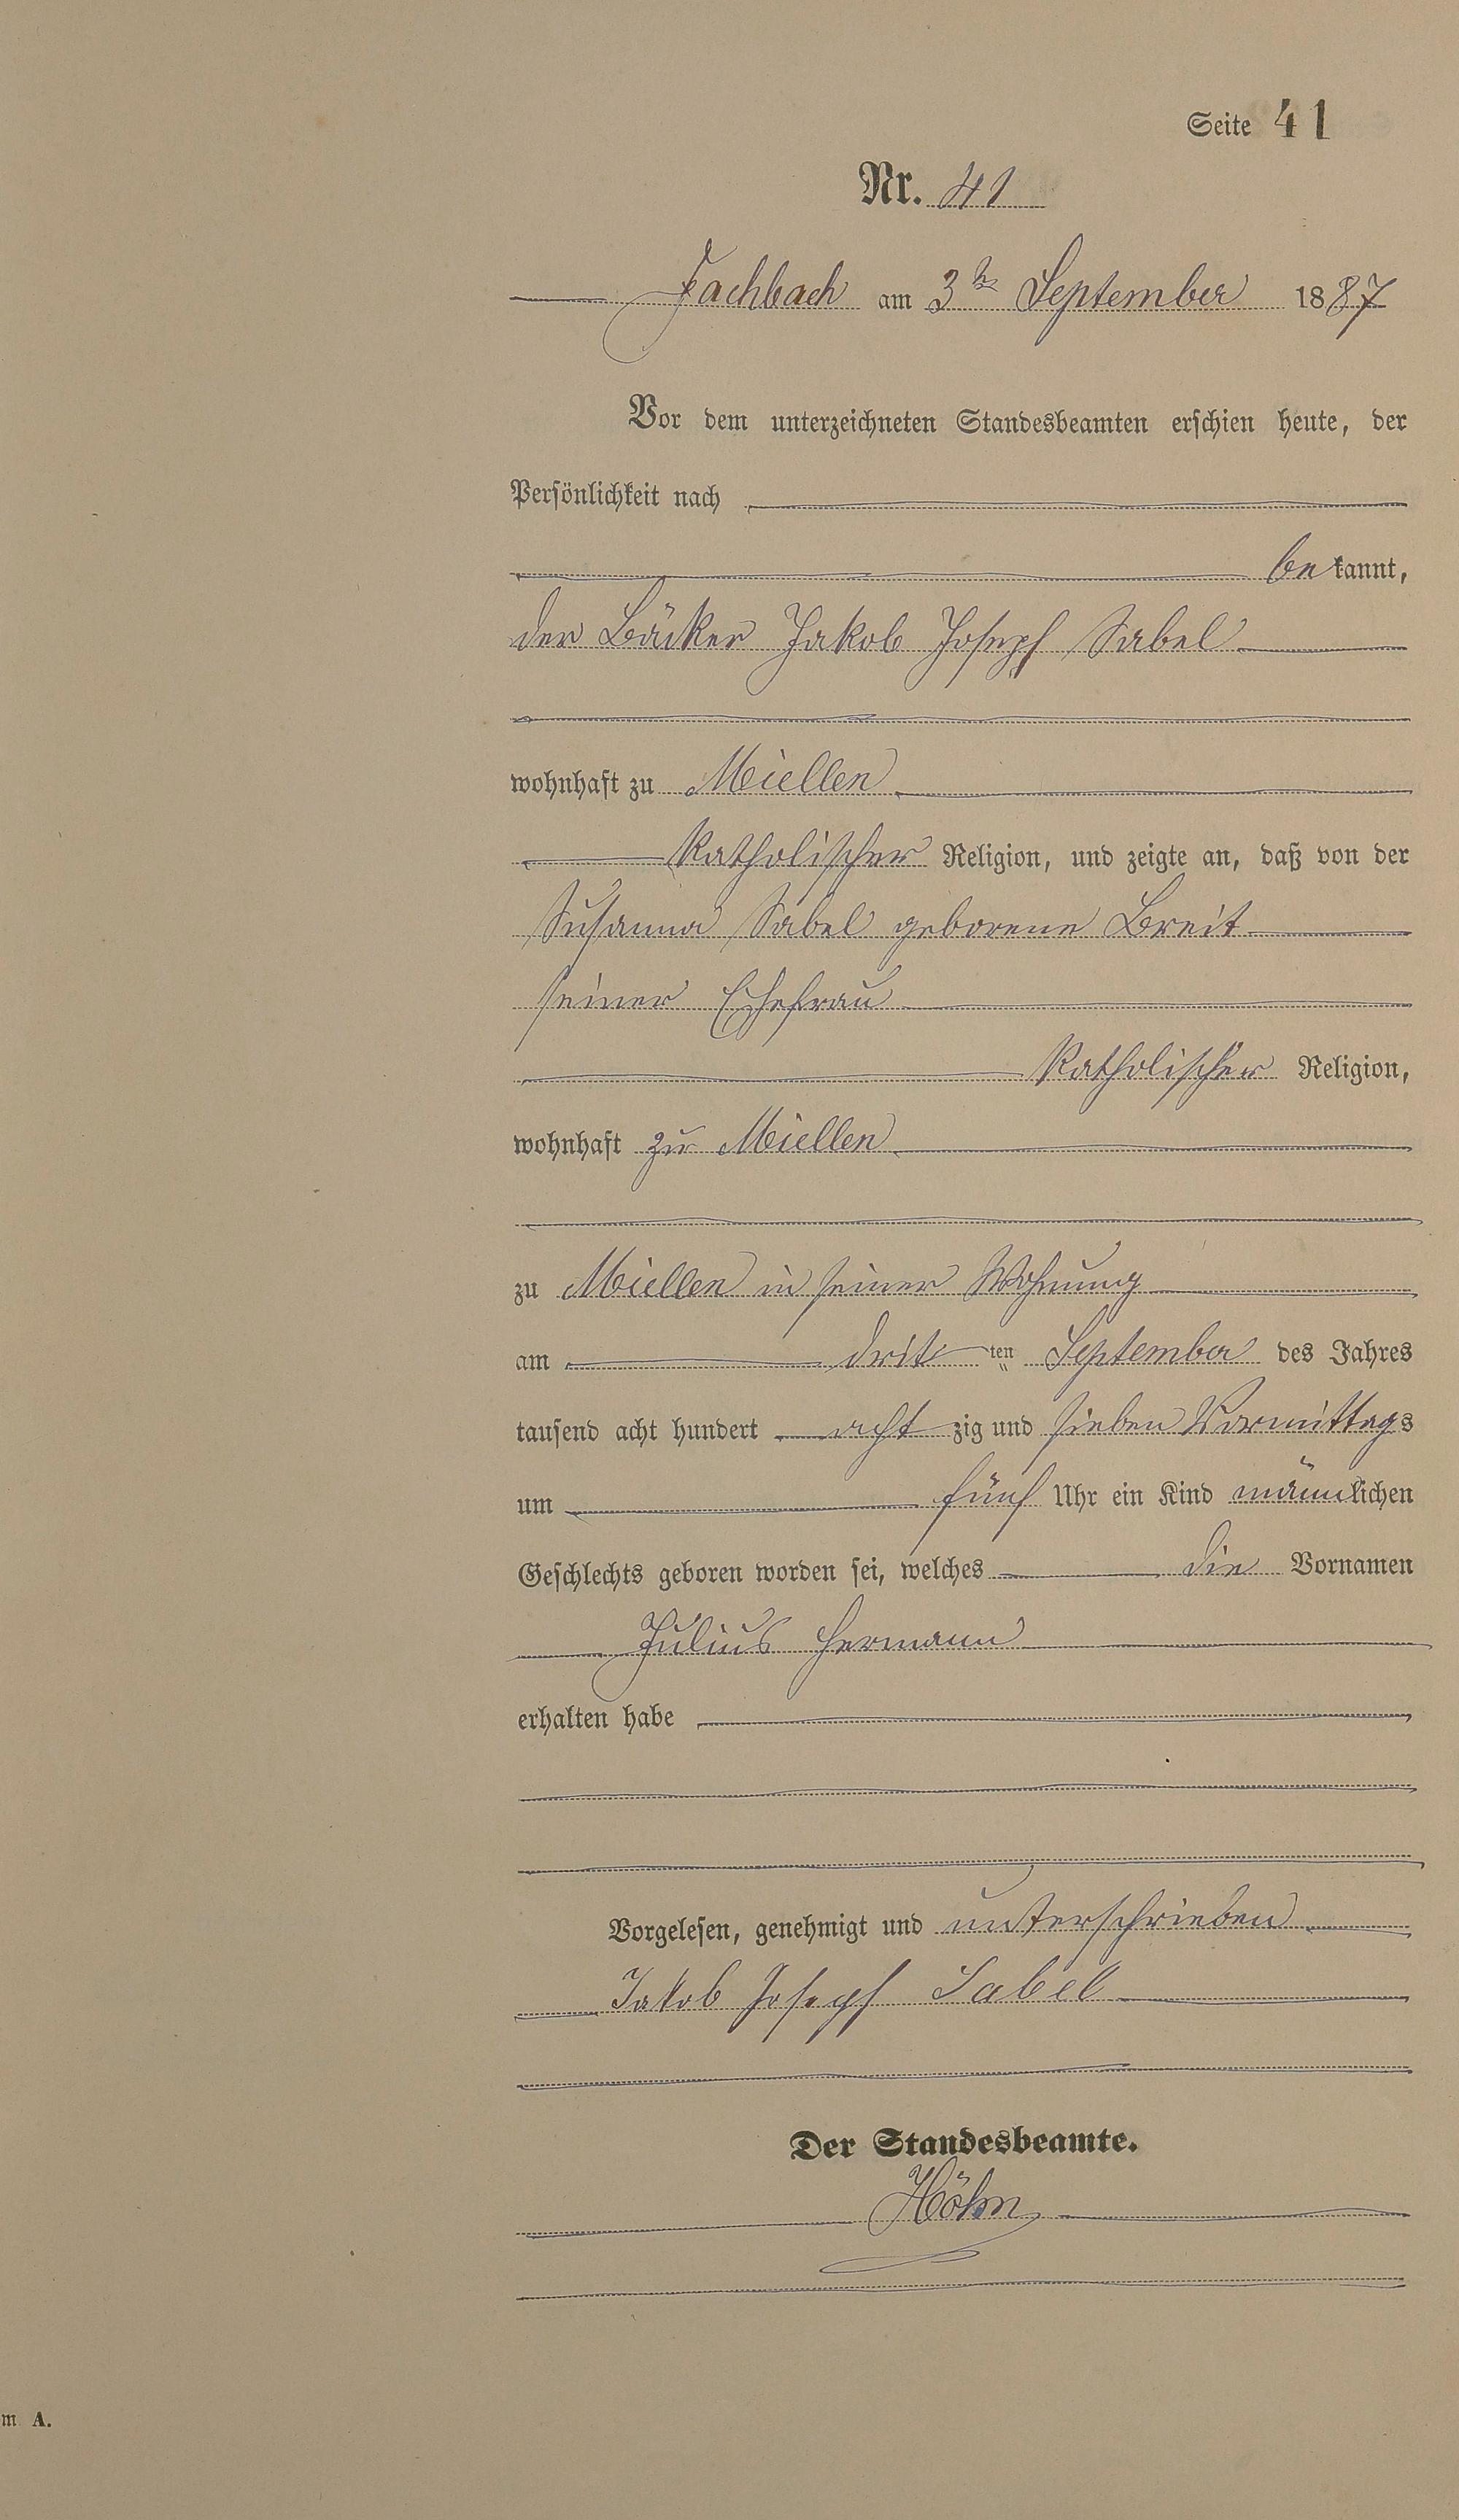 Seite 41
Nr. 41
Fachbach am 3ten September 1887
Vor dem unterzeichneten Standesbeamten erschien heute, der
Persönlichkeit nach
bekannt,
der Bäcker Jakob Joseph Sabel
wohnhaft zu Miellen
katholischer Religion, und zeigte an, daß von der
Susanna Sabel geborene Breit
seiner Ehefrau
katholischer Religion,
wohnhaft zu Miellen
zu Miellen in seiner Wohnung
am dritten September des Jahres
tausend acht hundert acht zig und sieben Vormittags
um fünf Uhr ein Kind männlichen
Geschlechts geboren worden sei, welches die Vornamen
Julius Hermann
erhalten habe
Vorgelesen, genehmigt und unterschrieben
Jakob Joseph Sabel
Der Standesbeamte.
Höhn
m A.